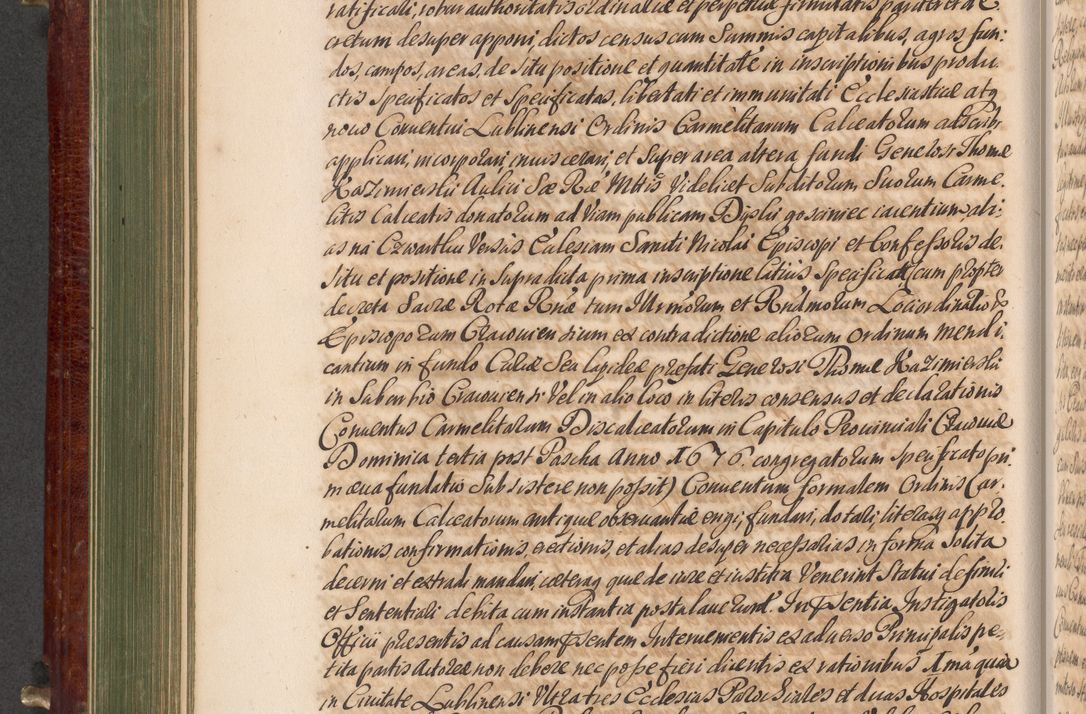 ratificari, robur authoritatis ordinariæ et perpetuæ firmitatis pariter et de
cretum desuper apponi, dictos census cum Summis capitalibus, agros fun:
dos, campos, areas, de situ positione et quantitate in inscriptionibus produ
ctis Specificatos et Specificatas, libertati et immunitati Ecclesiasticæ atq
novo Conventui Lublinensi Ordinis Carmelitarum Calceatorum adscribi
applicari, incorporari, inviscerari, et Super area altera fundi Generosi Thomæ
Kazimierski Aulici Sæ Ræ Mttis Videlicet Subditorum Suorum Carme.
litis Calceatis donatorum ad Viam publicam Bijski gosciniec iacentium ali:
as na Czwartku Versus Ecclesiam Sancti Nicolai Episcopi et Confessoris de
Situ et positione in Supradicta prima inscriptione latius Specificat cum propter
decreta Sacræ Rotæ Rnæ tum Illrmorum et Rndmorum Loci ordinarior
Episcoporum Cracovien sium ex contradictione aliorum ordinum mendi
cantium in fundo Curiæ Seu lapideæ præfati Generosi Thomæ Kazimierski
in Suburbio Cracoviensi Vel in alio loco in literis consensus et declarationis
Conventus Carmelitarum Discalceatorum in Capitulo Provinciali Cracoviæ
Dominica tertia post Pascha Anno 1676. congregatorum Specificato pri
mæva fundatio Subsistere non possit) Conventum formalem Ordinis Car.
melitarum Calceatorum antiquæ observantiæ erigi, fundari, dotari, literasq appro
bationis, confirmationis, erectionis, et alias desuper necessarias in forma Solita
decerni et extradi mandari, cæteraq quæ de iure et iustitia Venerint Statui definiri
et Sententiari debita cum instantia postulaverunt. In Præsentia Instigatoris
Officii præsentis ad causam præsentem Intervenientis ex adverso Principalis pe
tita partis Actoreæ non debere nec posse fieri dicentis ex rationibus 1ma quia
in Civitate Lublinensi Ultra tres Ecclesias Parochiales et duas Hospitales